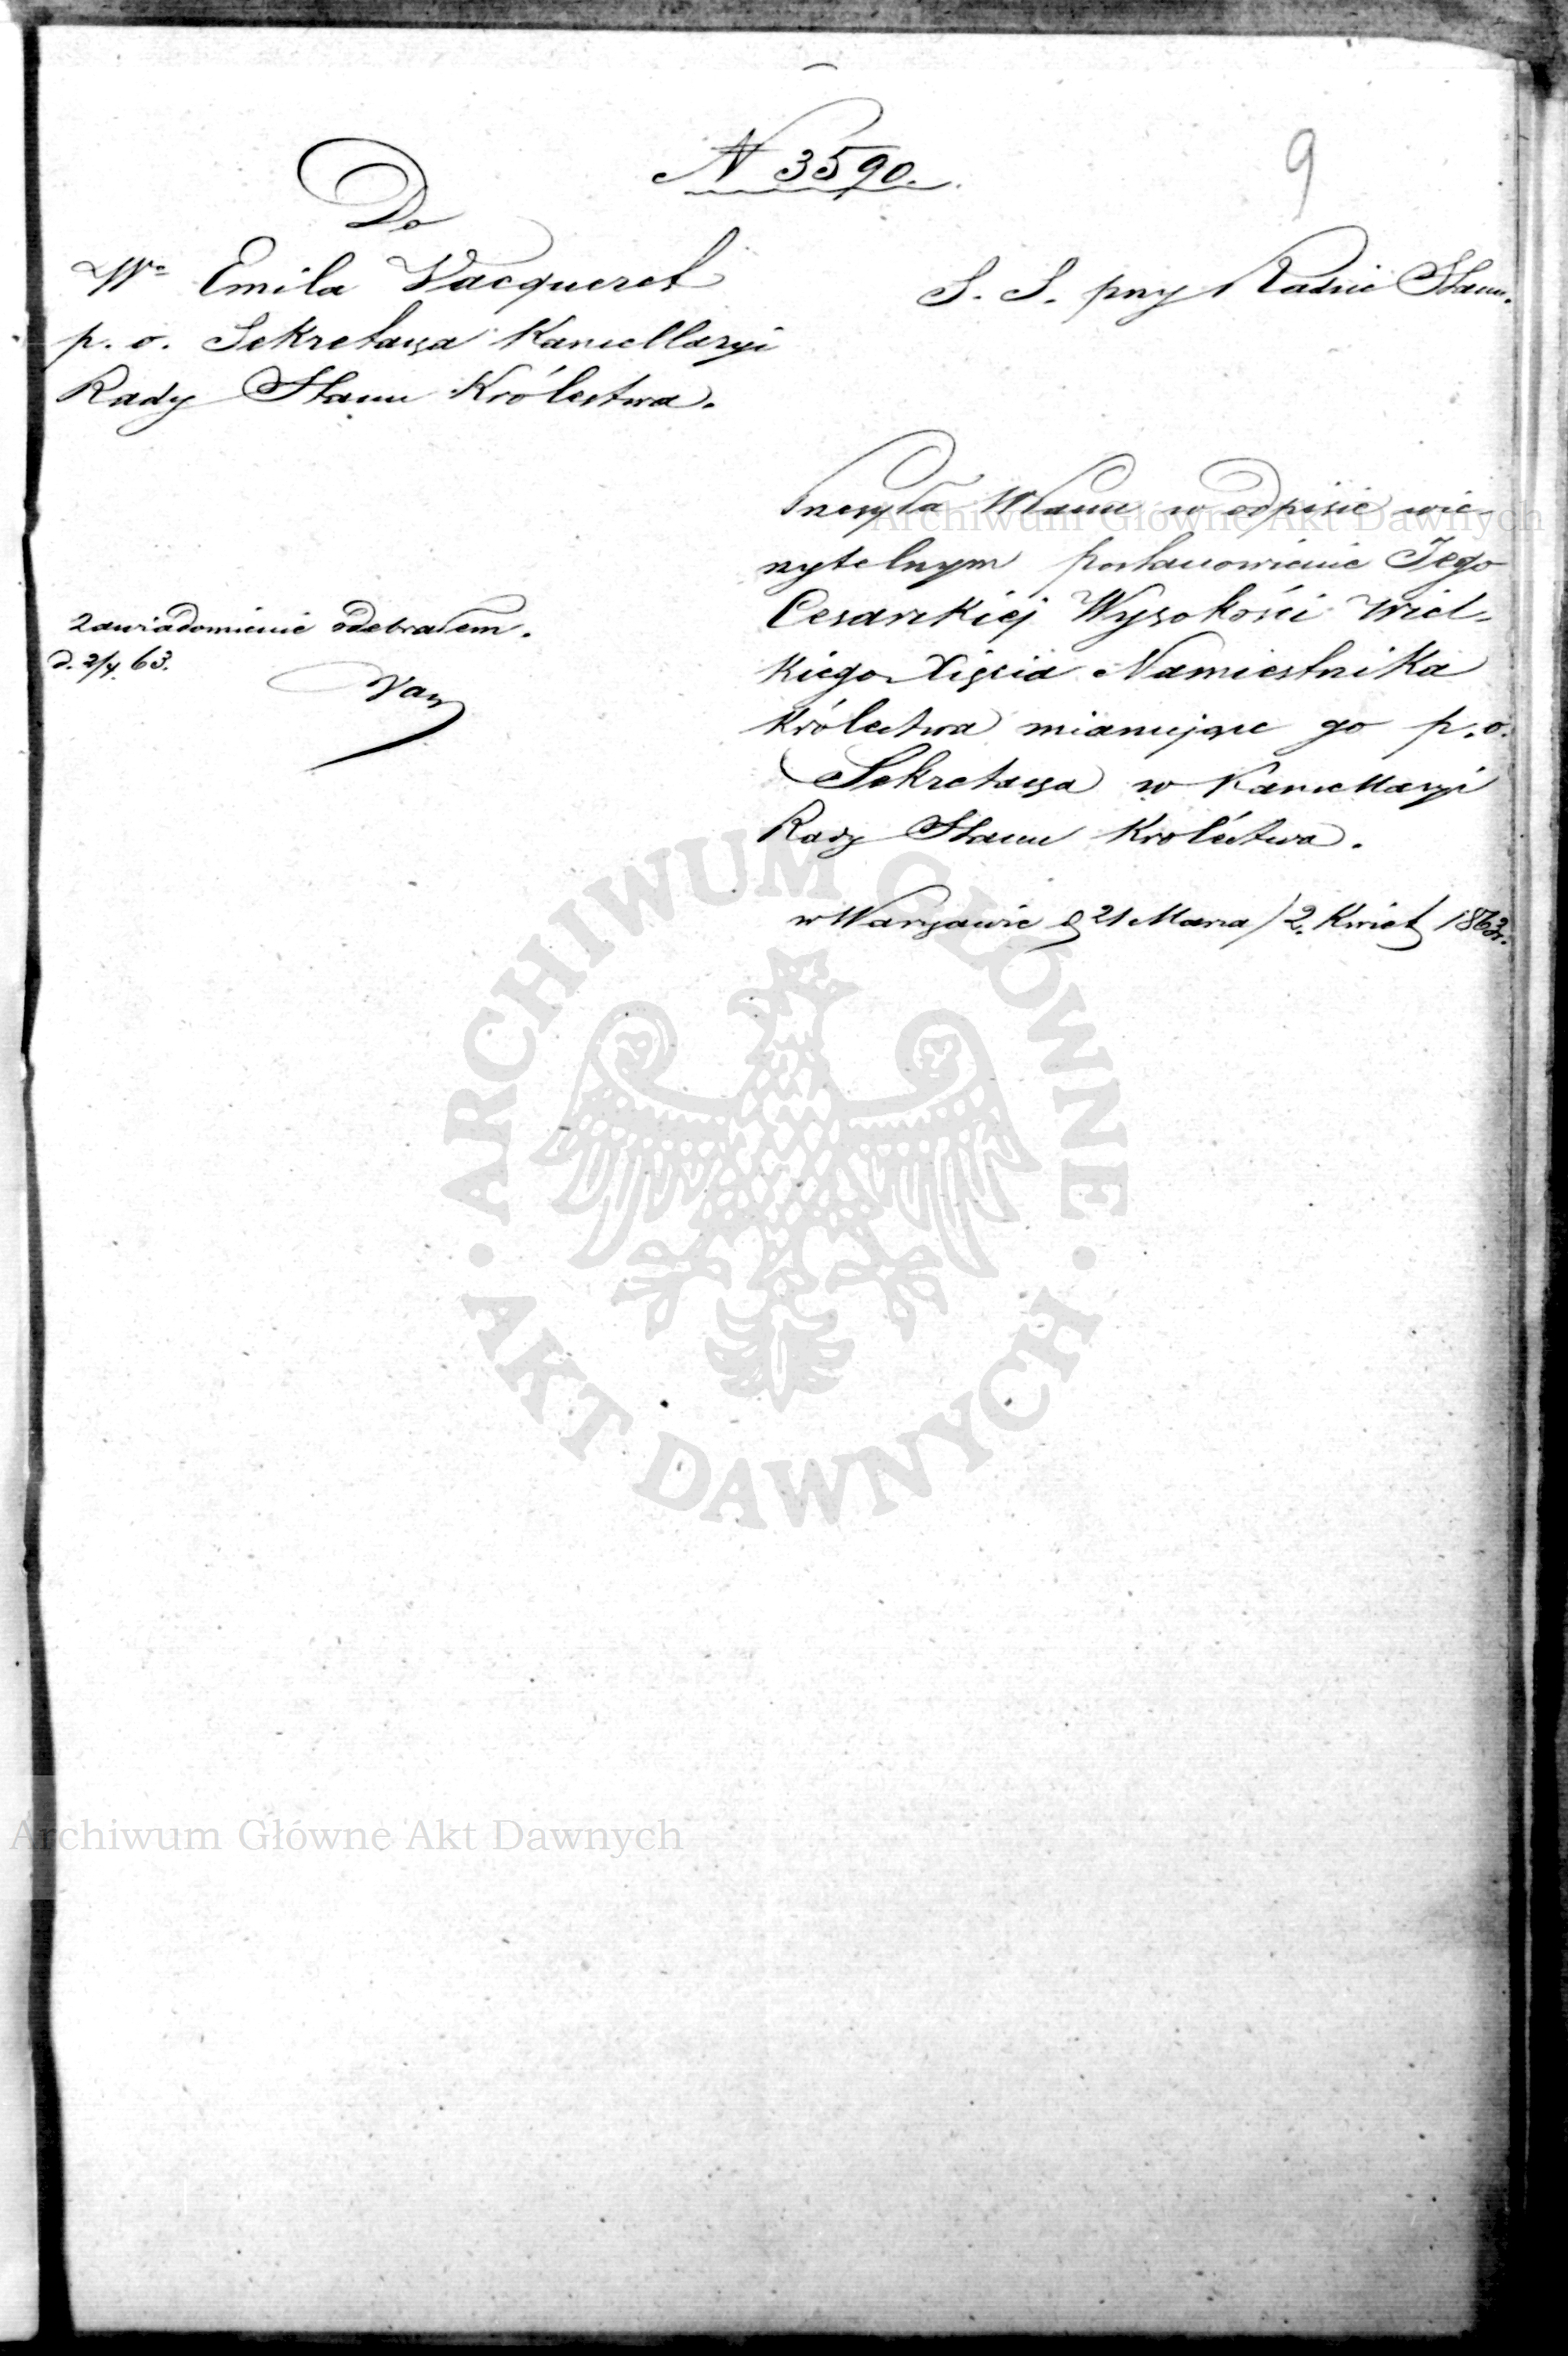 N 3590.
9
Do
Wo Emila Vacqueret
p. o. Sekretarza Kancellaryi
Rady Stanu Królestwa.
S. S. przy Radzie Stanu.
Przesyła WPanu w odpisie wie-
rzytelnym postanowienie Jego
Cesarskiej Wysokości Wiel-
kiego Xięcia Namiestnika
Królestwa mianujące go p. o.
Sekretarza w Kancellaryi
Rady Stanu Królestwa.
w Warszawie d 21 Marca / 2. Kwiet 1863 r.
Zawiadomienie odebrałem.
d. 2/4 63.
Vaq
Archiwum Główne Akt Dawnych
ARCHIWUM GŁÓWNE
· AKT DAWNYCH ·
Archiwum Główne Akt Dawnych